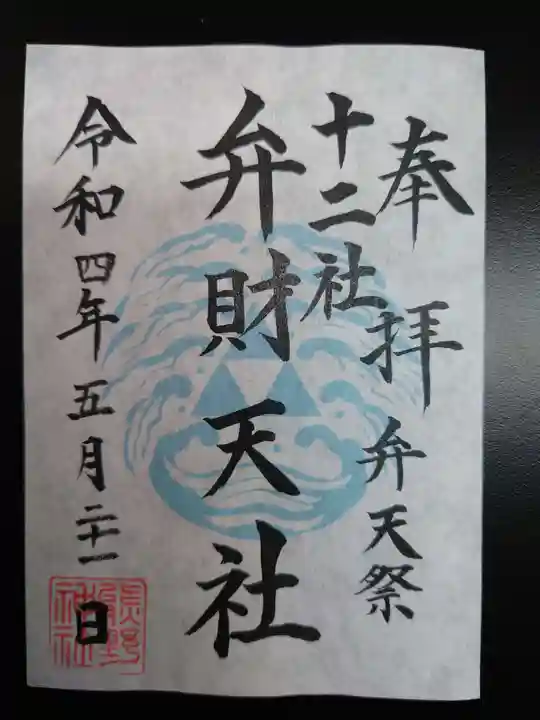 奉拝 弁天祭
十二社
弁財天社
令和四年五月二十一日
熊野神社